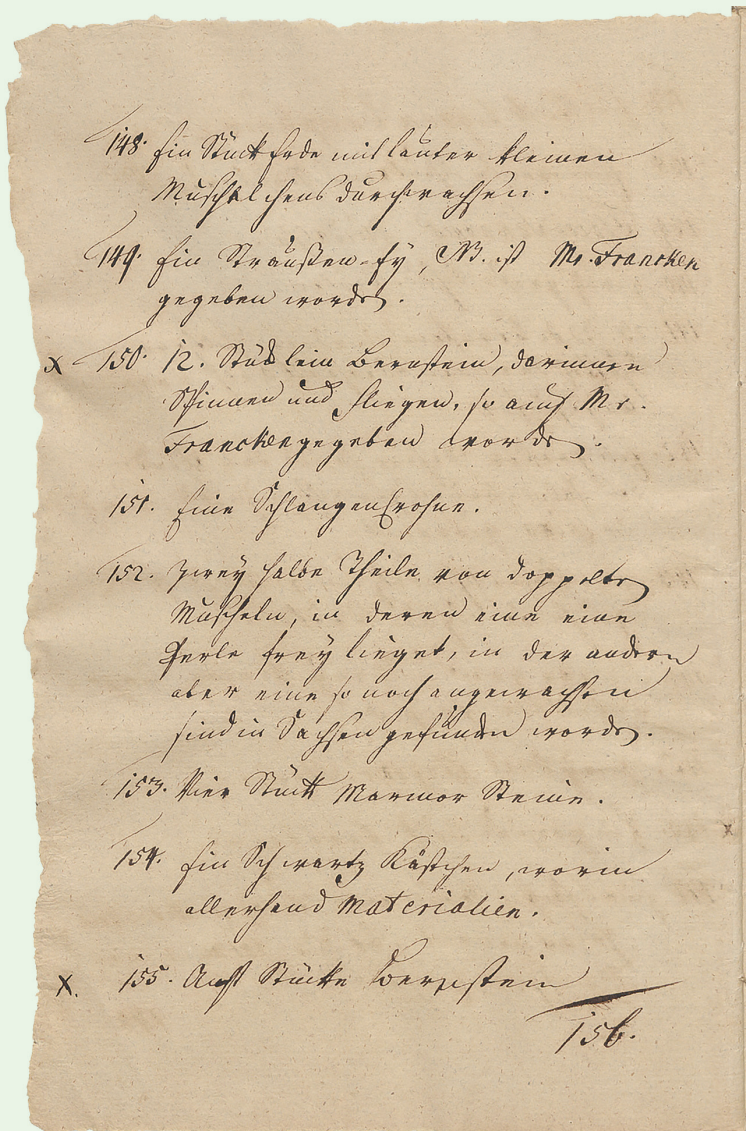 148. Ein Stück Erde mit lauter kleinen
Muschelchens durchwachsen.
149. Ein Straußen-Ey, NB. ist Mr. Francken
gegeben worden.
x 150. 12. Stücklein Bernstein, darinnen
Spinnen und Fliegen, so auch Mr.
Francken gegeben worden.
151. Eine Schlangen Crohne.
152. Zwey halbe Theile von doppelten
Muscheln, in deren eine eine
Perle frey lieget, in der andern
aber eine so noch angewachsen
sind in Sachsen gefunden worden.
153. Vier Stück Marmor Steine.
154. Ein Schwartz Kästchen, worin
allerhand Materialien.
x. 155. Acht Stücke Bernstein
156.